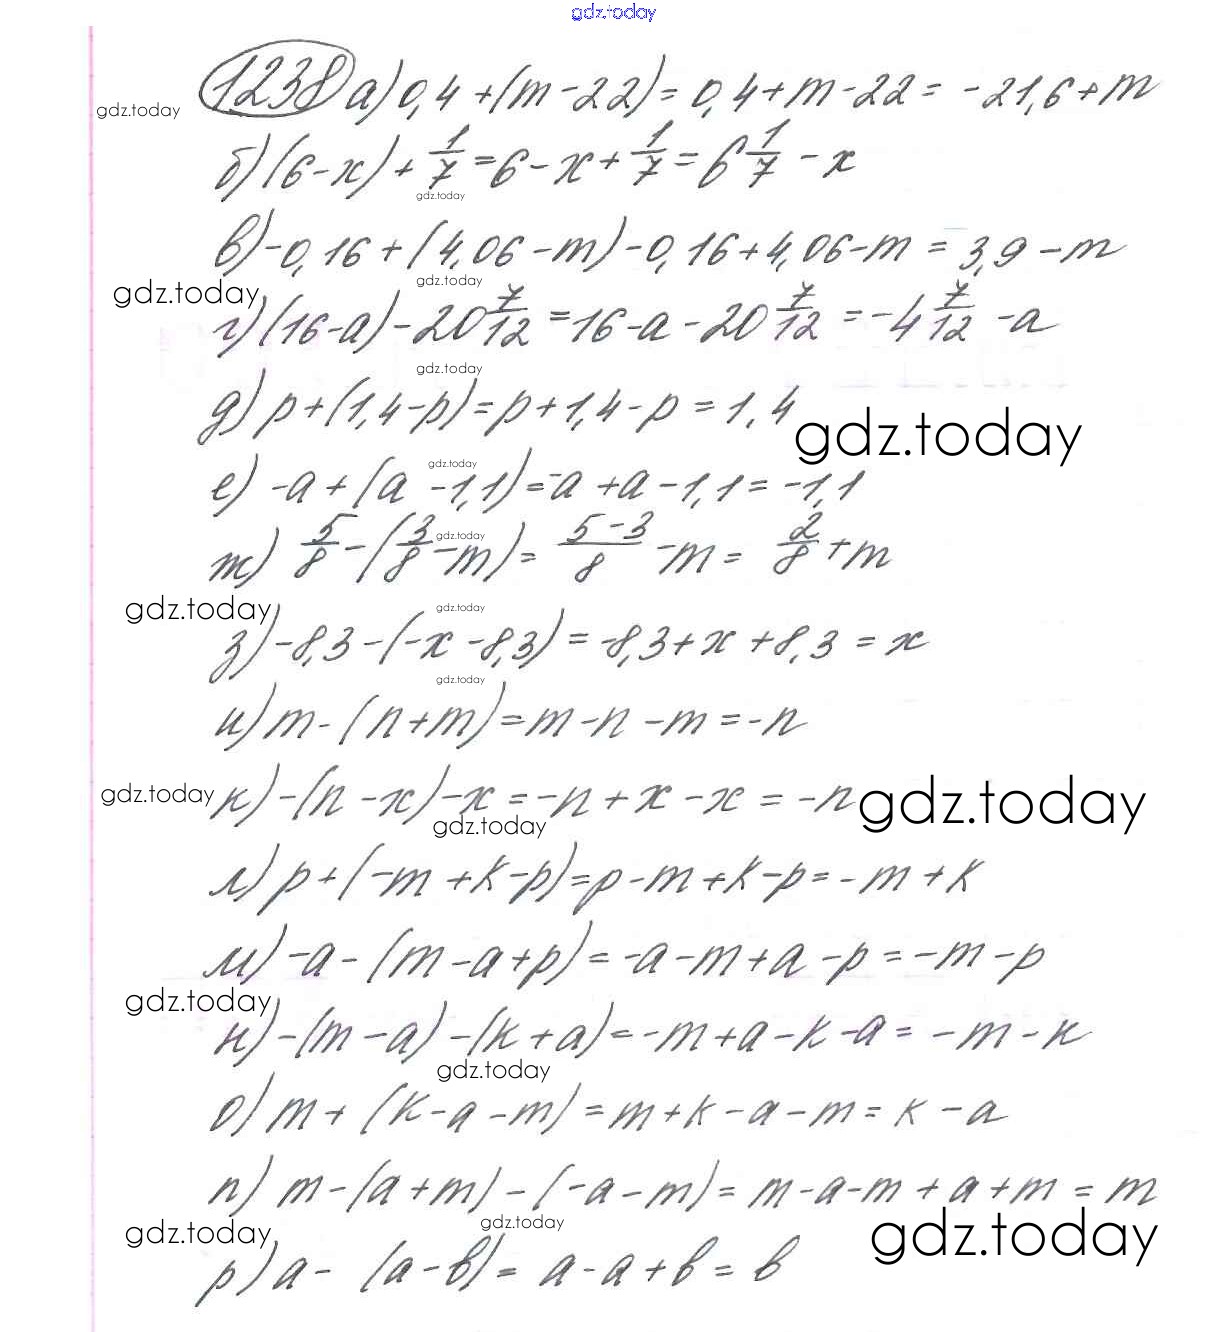 gdz.today
1238 а) 0,4 + (m - 22) = 0,4 + m - 22 = -21,6 + m
gdz.today
б) (6 - x) + 1/7 = 6 - x + 1/7 = 6 1/7 - x
gdz.today
в) -0,16 + (4,06 - m) - 0,16 + 4,06 - m = 3,9 - m
gdz.today
gdz.today
г) (16 - a) - 20 7/12 = 16 - a - 20 7/12 = -4 7/12 - a
gdz.today
д) p + (1,4 - p) = p + 1,4 - p = 1,4
gdz.today
gdz.today
е) -a + (a - 1,1) = -a + a - 1,1 = -1,1
gdz.today
ж) 5/8 - (3/8 - m) = 5-3/8 - m = 2/8 + m
gdz.today
gdz.today
з) -8,3 - (-x - 8,3) = -8,3 + x + 8,3 = x
gdz.today
и) m - (n + m) = m - n - m = -n
gdz.today
к) - (n - x) - x = -n + x - x = -n
gdz.today
gdz.today
л) p + (-m + k - p) = p - m + k - p = -m + k
м) -a - (m - a + p) = -a - m + a - p = -m - p
gdz.today
н) - (m - a) - (k + a) = -m + a - k - a = -m - k
gdz.today
о) m + (k - a - m) = m + k - a - m = k - a
п) m - (a + m) - (-a - m) = m - a - m + a + m = m
gdz.today
gdz.today
gdz.today
р) a - (a - b) = a - a + b = b